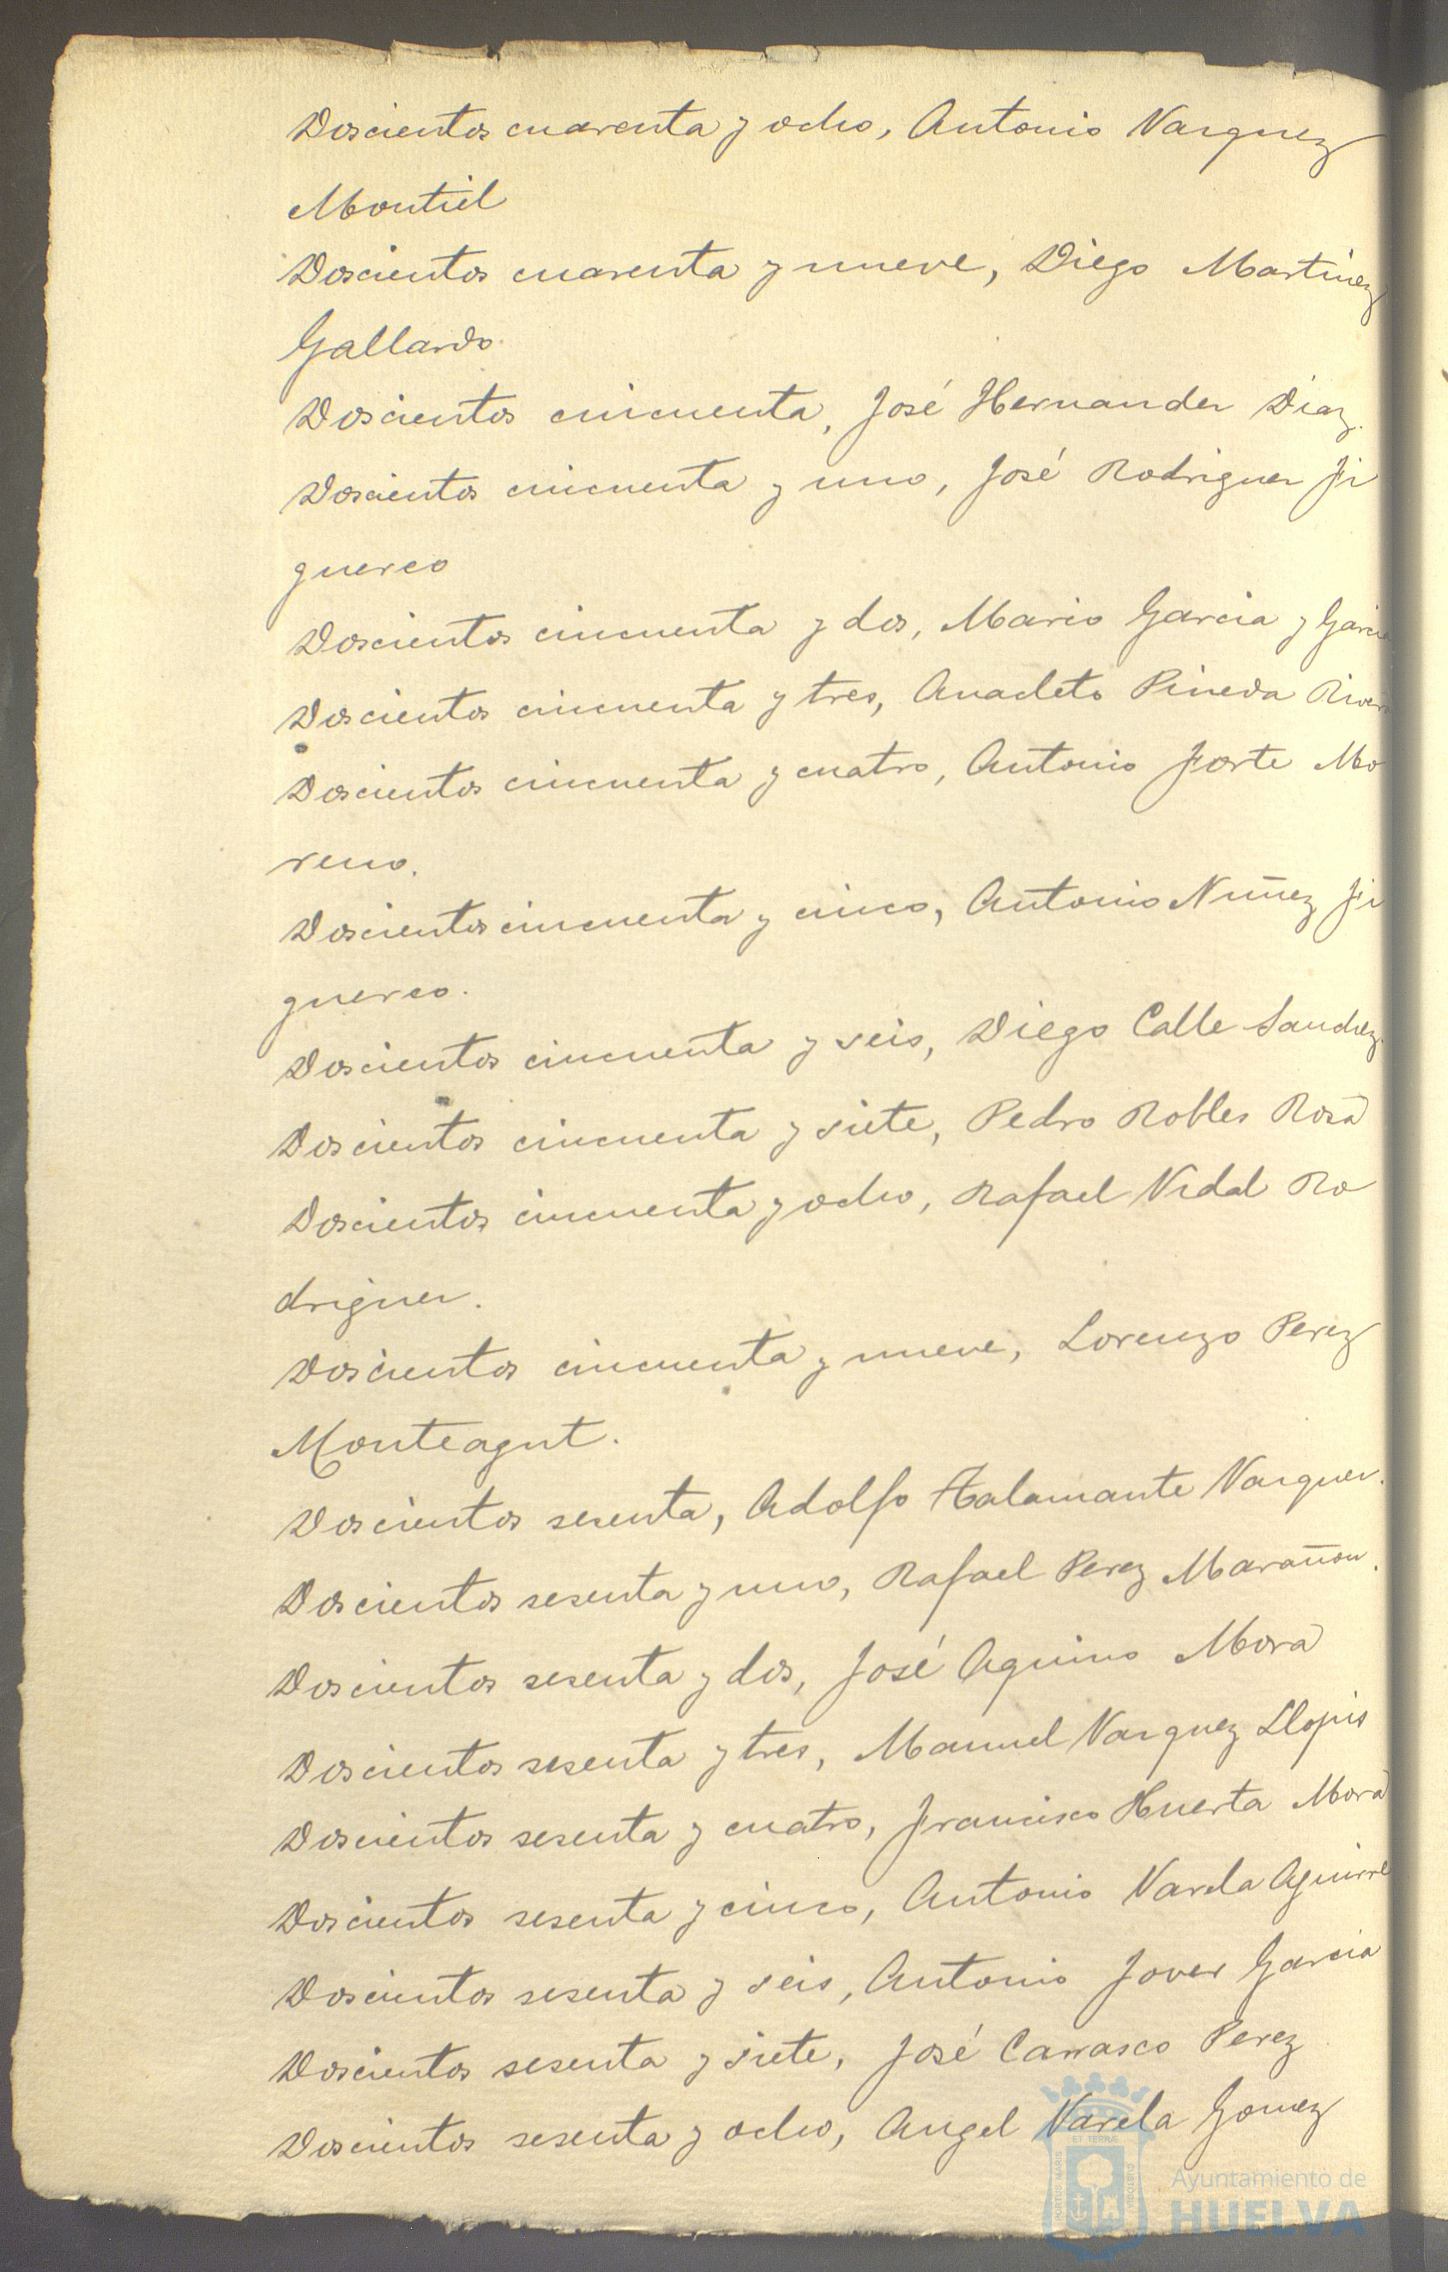 Doscientos cuarenta y ocho, Antonio Vazquez
Montiel
Doscientos cuarenta y nueve, Diego Martinez
Gallardo.
Doscientos cincuenta, José Hernandez Diaz.
Doscientos cincuenta y uno, José Rodriguez Fi
guereo
Doscientos cincuenta y dos, Mario Garcia y Garcia
Doscientos cincuenta y tres, Anacleto Pineda Rivero
Doscientos cincuenta y cuatro, Antonio Forte Mo
reno.
Doscientos cincuenta y cinco, Antonio Nuñez Fi
guereo.
Doscientos cincuenta y seis, Diego Calle Sanchez.
Doscientos cincuenta y siete, Pedro Robles Rosa
Doscientos cincuenta y ocho, Rafael Vidal Ro
driguez.
Doscientos cincuenta y nueve, Lorenzo Perez
Monteagut.
Doscientos sesenta, Adolfo Talamante Vazquez.
Doscientos sesenta y uno, Rafael Perez Marañon.
Doscientos sesenta y dos, José Aquino Mora
Doscientos sesenta y tres, Manuel Vazquez Llopis
Doscientos sesenta y cuatro, Francisco Huerta Mora
Doscientos sesenta y cinco, Antonio Varela Aguirre
Doscientos sesenta y seis, Antonio Jover Garcia
Doscientos sesenta y siete, José Carrasco Perez
Doscientos sesenta y ocho, Angel Varela Gomez
Ayuntamiento de
HUELVA